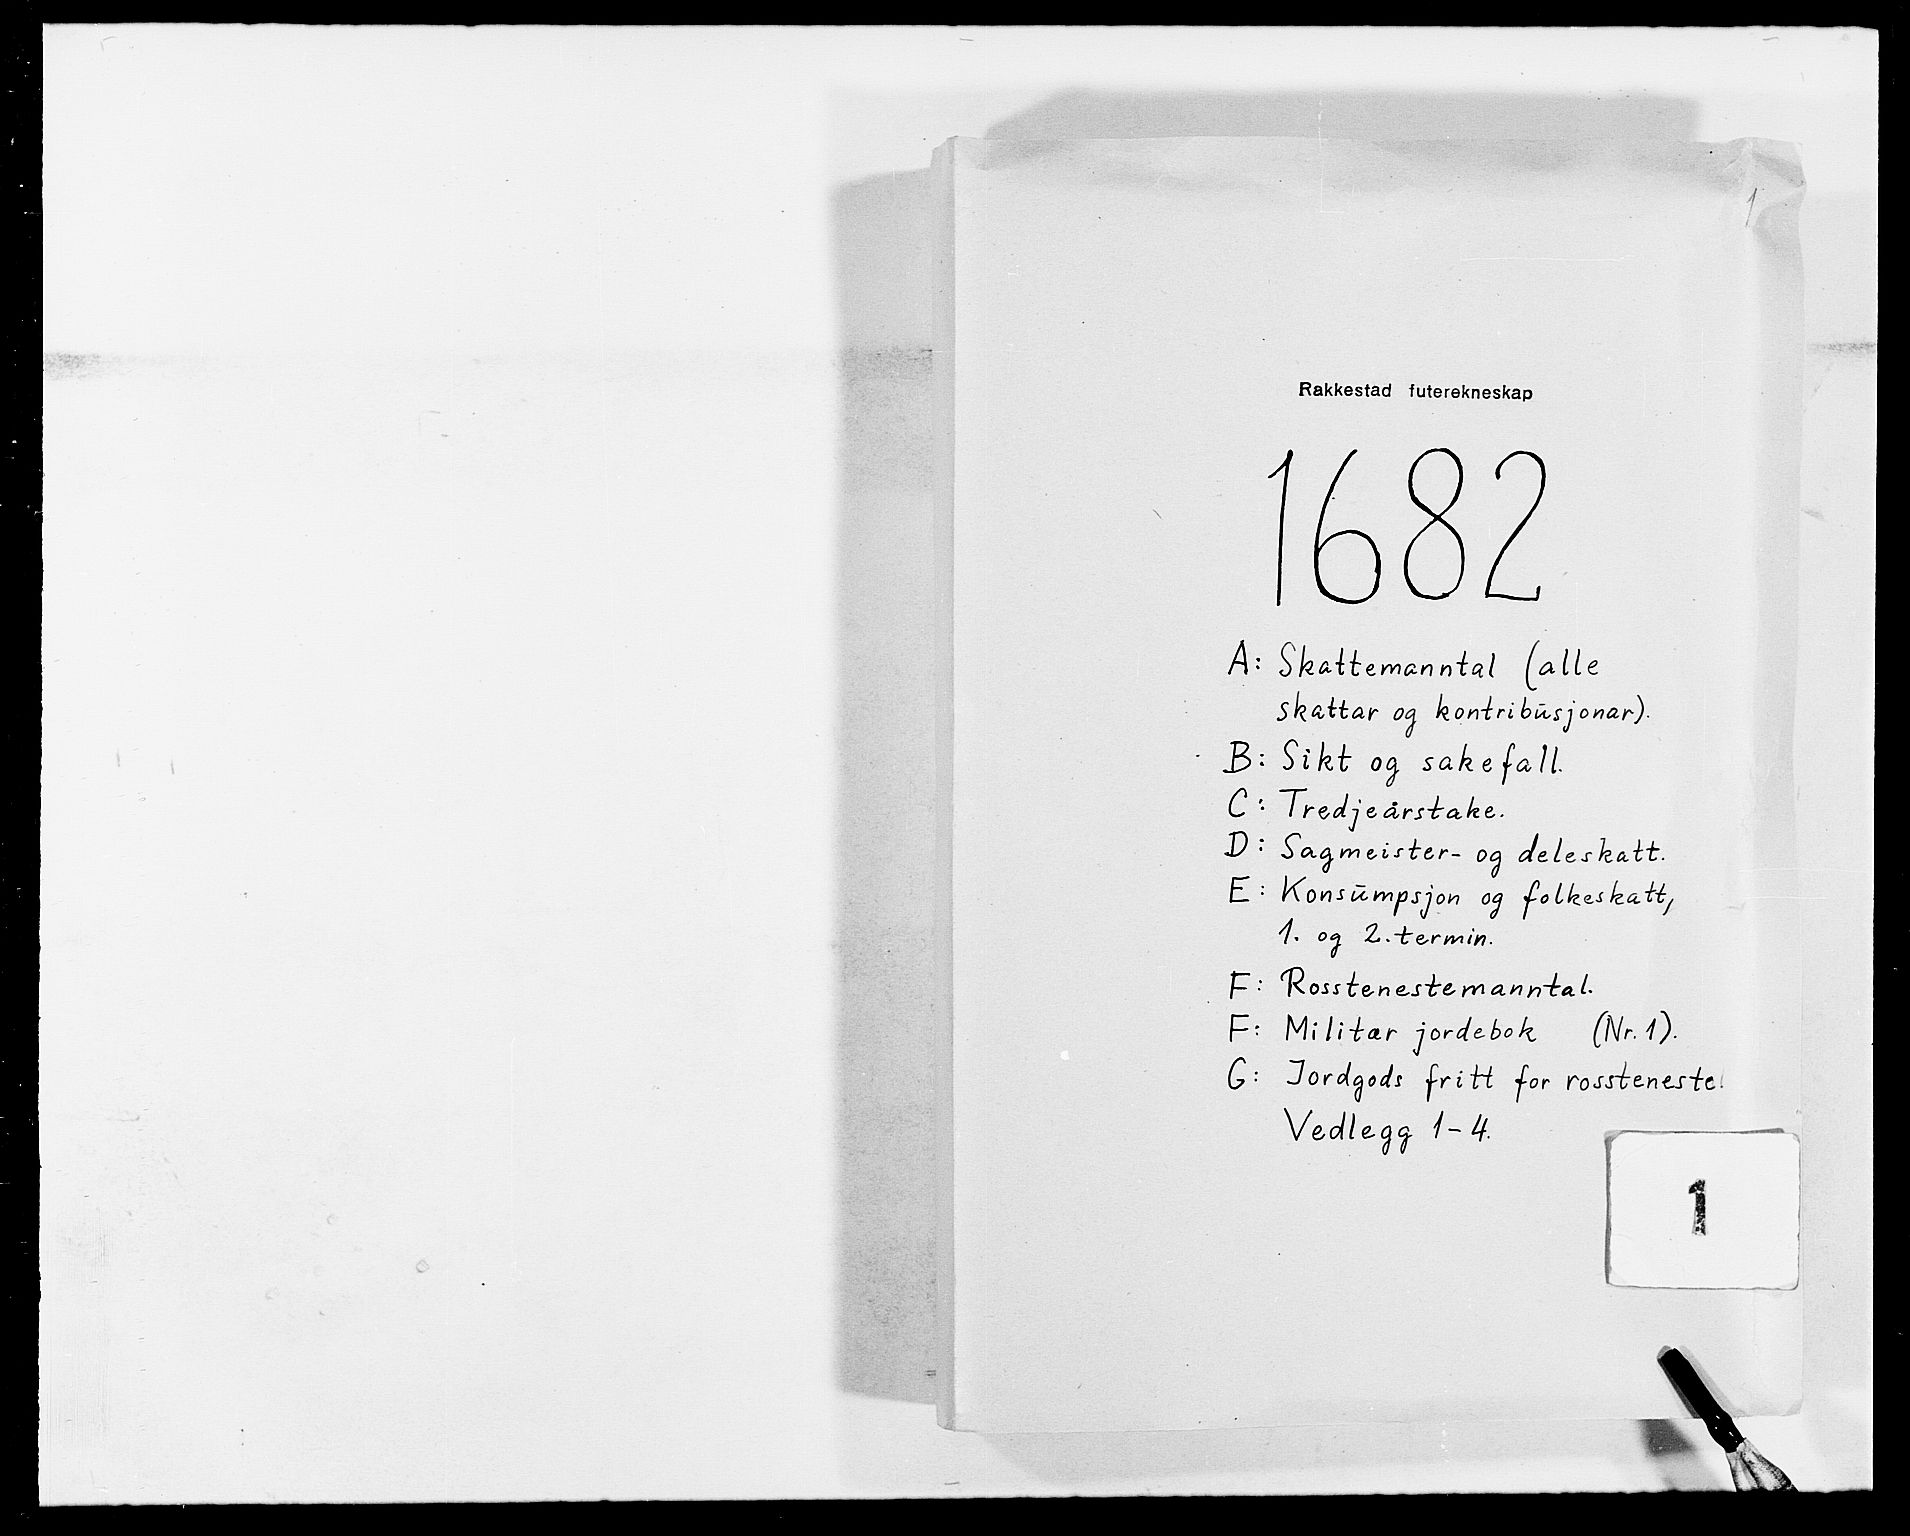 1
Rakkestad futerekneskap
1682
A: Skattemanntal (alle
skattar og kontribūsjonar).
B: Sikt og sakefall.
C: Tredjeårstake.
D: Sagmeister- og deleskatt.
E: Konsūmpsjon og folkeskatt,
1. og 2. termin.
F: Rosstenestemanntal.
F: Militær jordebok (Nr. 1).
G: Jordgods fritt for rossteneste.
Vedlegg 1-4.
1